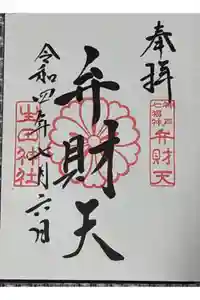 奉拝
神戸
七福神
弁財天
弁財天
令和四年七月六日
生田神社